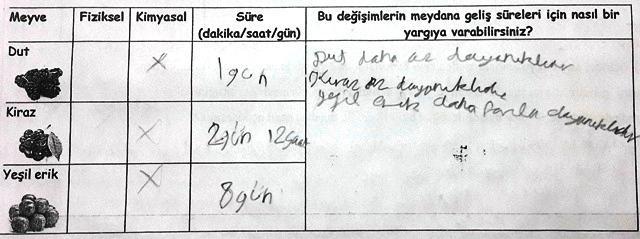 Meyve Fiziksel Kimyasal Süre (dakika/saat/gün) Bu değişimlerin meydana geliş süreleri için nasıl bir yargıya varabilirsiniz?
Dut X 1 gün
Dut daha az dayanıklıdır
Kiraz az dayanıklıdır
Yeşil erik daha fazla dayanıklıdır
Kiraz X 2 gün 12 saat
Yeşil erik X 8 gün